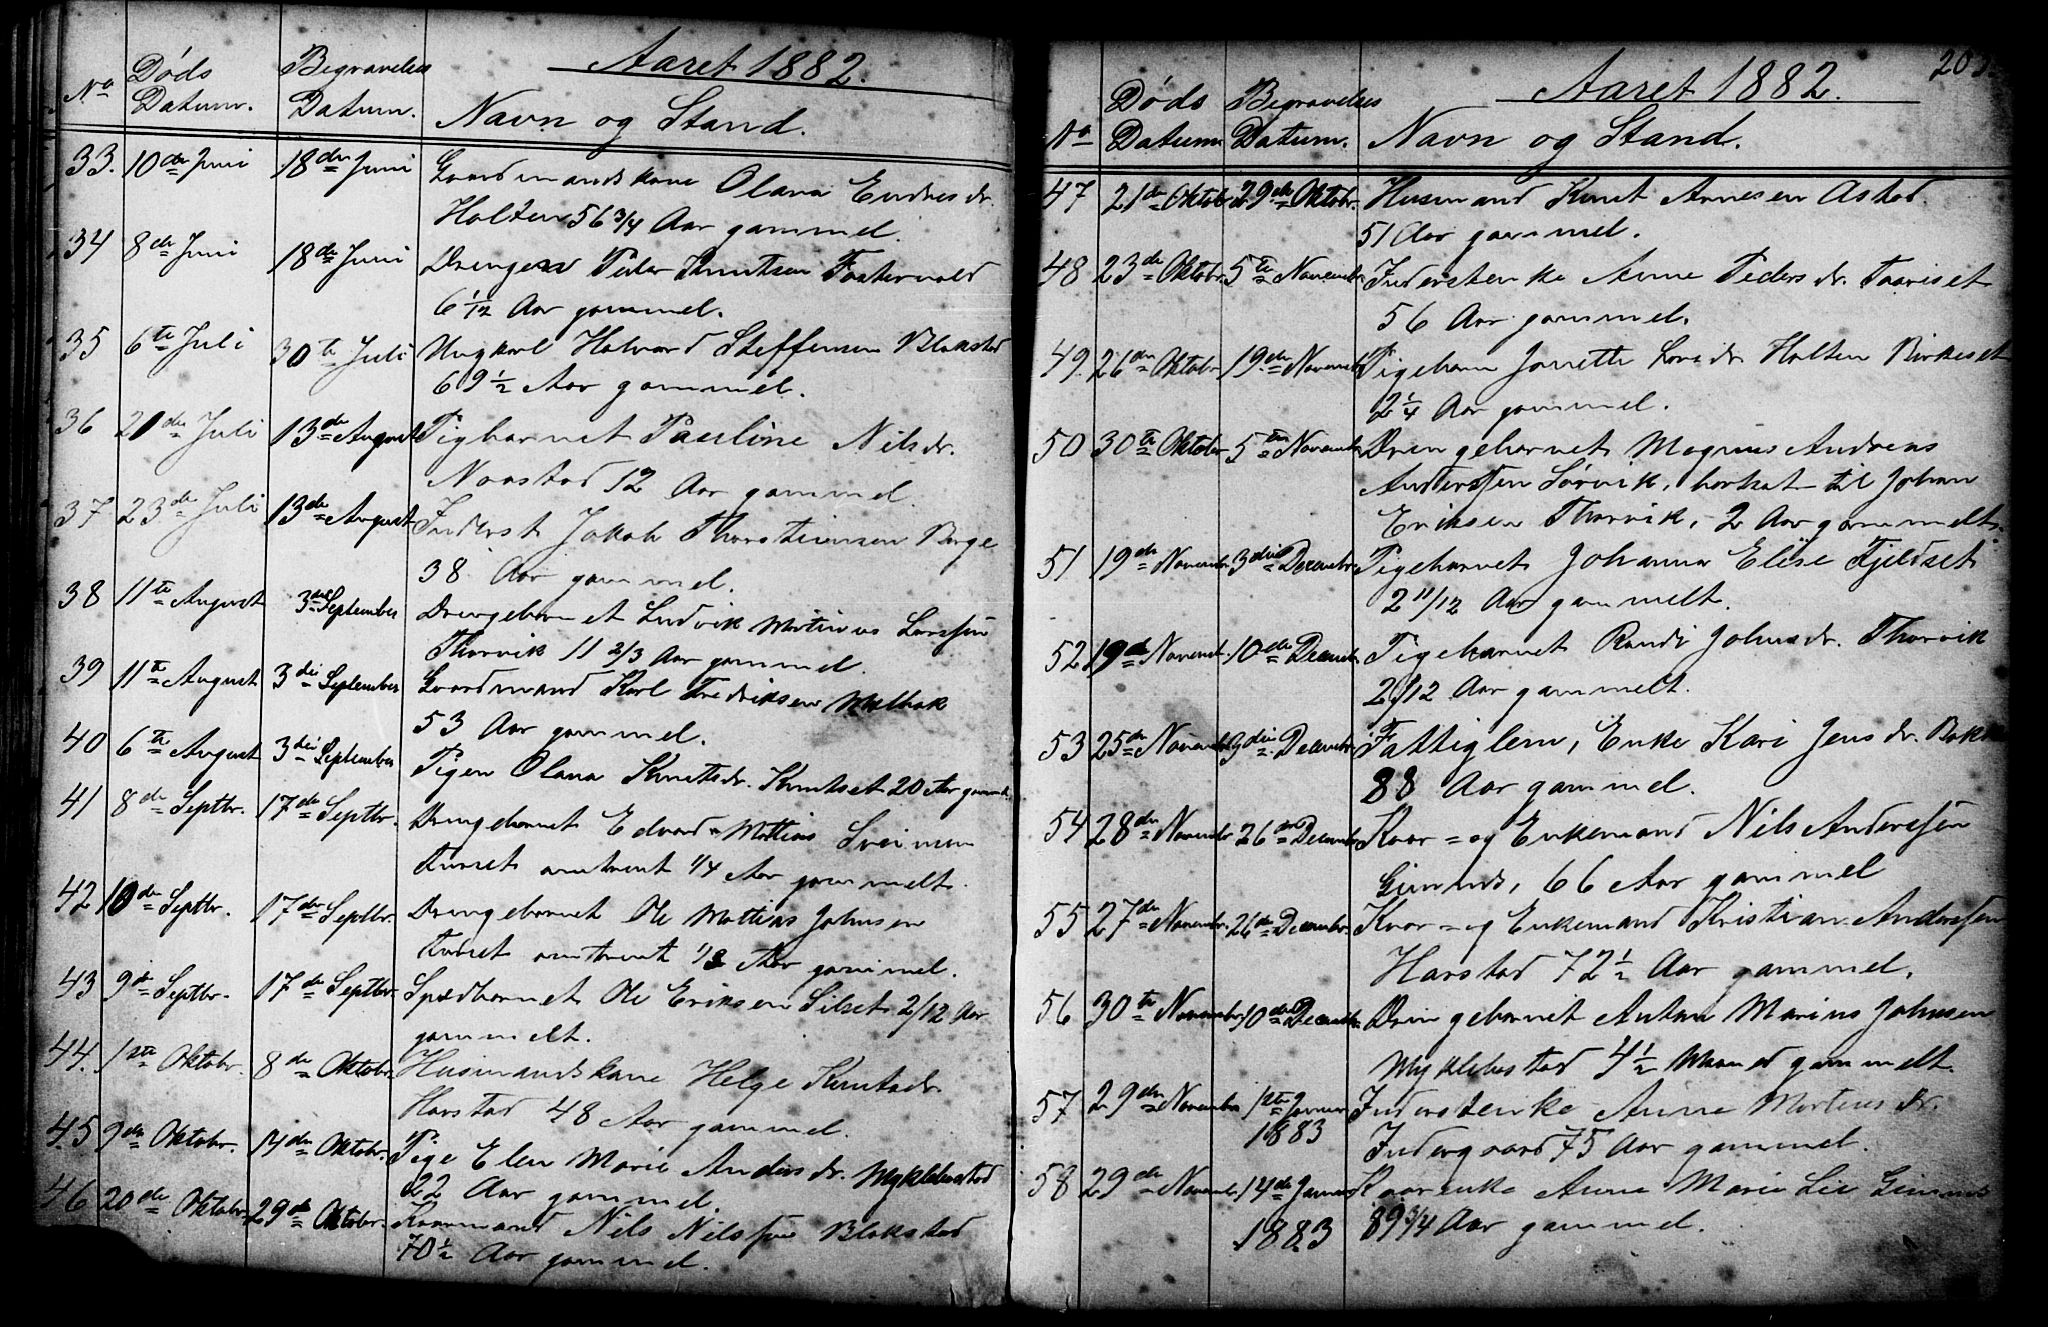 Aaret 1882.
No Døds Datum. Begravelses Datum. Navn og Stand.
33. 10de Juni 18de Juni Gaardmandskone Olava Endresdr.
Holten 56 3/4 Aar gammel.
34 8de Juni 18de Juni Drengen Peder Knutsen
6 1/12 Aar gammel.
35 6te Juli 30te Juli Ungkarl Halvard Steffensen Blakstad
69 1/2 Aar gammel.
36 21de Juli 13de August Pigbarnet Pauline Nilsdr.
Naastad 12 Aar gammel
37 23de Juli 13de August Inderst Jakob Thorstiensen Berge
38 Aar gammel.
38 11te August 3die September Drengebarnet Ludvik Martinus Larssen
Thorvik 11 2/3 Aar gammel.
39 11te August 3die September Gaardmand Karl Fredriksen
53 Aar gammel.
40 6te August 3die September Pigen Olava Knutsdr. Knutset 20 Aar gamm.
41 8de Septbr. 17de Septbr. Drengebarnet Edvard Mattias
omtrent 1/4 Aar gammelt.
42 10de Septbr. 17de Septbr. Drengebarnet Ole Mattias Johnsen
omtrent 1/3 Aar gammel.
43 9de Septbr. 17de Septbr. Spædbarnet Ole Eriksen Silset 2/12 Aar
gammelt.
44. 1ste Oktobr. 8de Oktobr. Husmandskone Helge Knutsdr.
Harstad 48 Aar gammel.
45 9de Oktobr. 14de Oktobr. Pige Elen Marie Andersdr. Myklebustad
22 Aar gammel.
46 20de Oktobr. 29de Oktobr. Kaarmand Nils Nilssen Blakstad
70 1/2 Aar gammel.
203.
Aaret 1882.
No Døds Datum Begravelses Datum. Navn og Stand.
47 21de Oktobr. 29de Oktobr. Husmand Knut Arnesen Astad.
51 Aar gammel.
48 23de Oktobr. 5te Novembr. Inderstenke Anne Pedersdr. Taariset
56 Aar gammel.
49. 26de Oktobr. 19de Novembr. Pigebarn Janette Larsdr Holten Birkeset
2 1/4 Aar gammel.
50 30te Oktobr 5te Novembr. Drengebarnet Magnus Andreas
Anderssen Sørvik, bortsat til Johan
Eriksen Thorvik, 2 Aar gammelt.
51 19de Novembr. 3die Decembr. Pigebarnet Johanna Elise Fjeldset
2 11/12 Aar gammelt.
52 19de Novembr. 10de Decembr. Pigebarnet Randi Johnsdr. Thorvik
2/12 Aar gammelt.
53 25de Novembr. 3die Decembr. Fattiglem, Enke Kari Jensdr.
88 Aar gammel.
54 28de Novembr. 26de Decembr. Kaar= og Enkemand Nils Anderssen
Gimnes, 66 Aar gammel
55 27de Novembr. 26de Decembr. Kaar= og Enkemand Kristian Anderssen
Harstad 72 1/2 Aar gammel.
56 30te Novembr. 10de Decembr. Drengebarnet Anton Marius Johnsen
Myklebustad 4 1/2 Maaned gammelt.
57 29de Novembr 1ste Januar 1883 Inderstenke Anne Mortensdr.
Indergaard 75 Aar gammel.
58 29de Novembr. 14de Januar 1883 Kaarenke Anne Marie Lie Gimnes
89 3/4 Aar gammel.